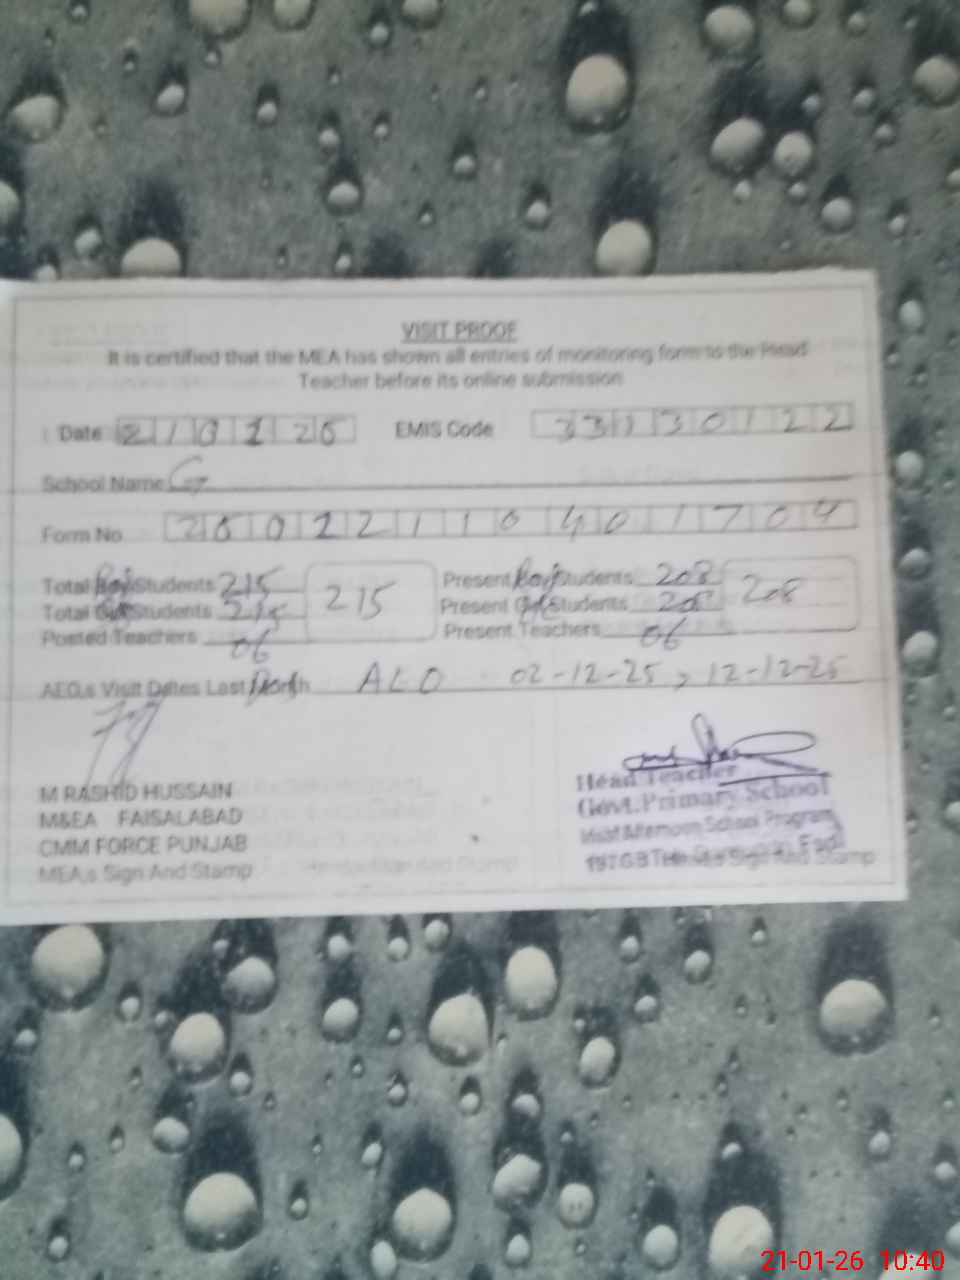 VISIT PROOF
It is certified that the MEA has shown all entries of monitoring form to the Head
Teacher before its online submission
Date 210126 EMIS Code 33130122
School Name G
Form No 260122110401704
Total Students 215 215 Present Students 208 208
Total Students 215 Present Students 208
Posted Teachers 06 Present Teachers 06
AEO,s Visit Dates Last Month 02-12-25, 12-12-25
M RASHID HUSSAIN
M&EA FAISALABAD
CMM FORCE PUNJAB
MEA,s Sign And Stamp
Head Teacher
Govt. Primary School
Afternoon School Program
Sign And Stamp
21-01-26 10:40